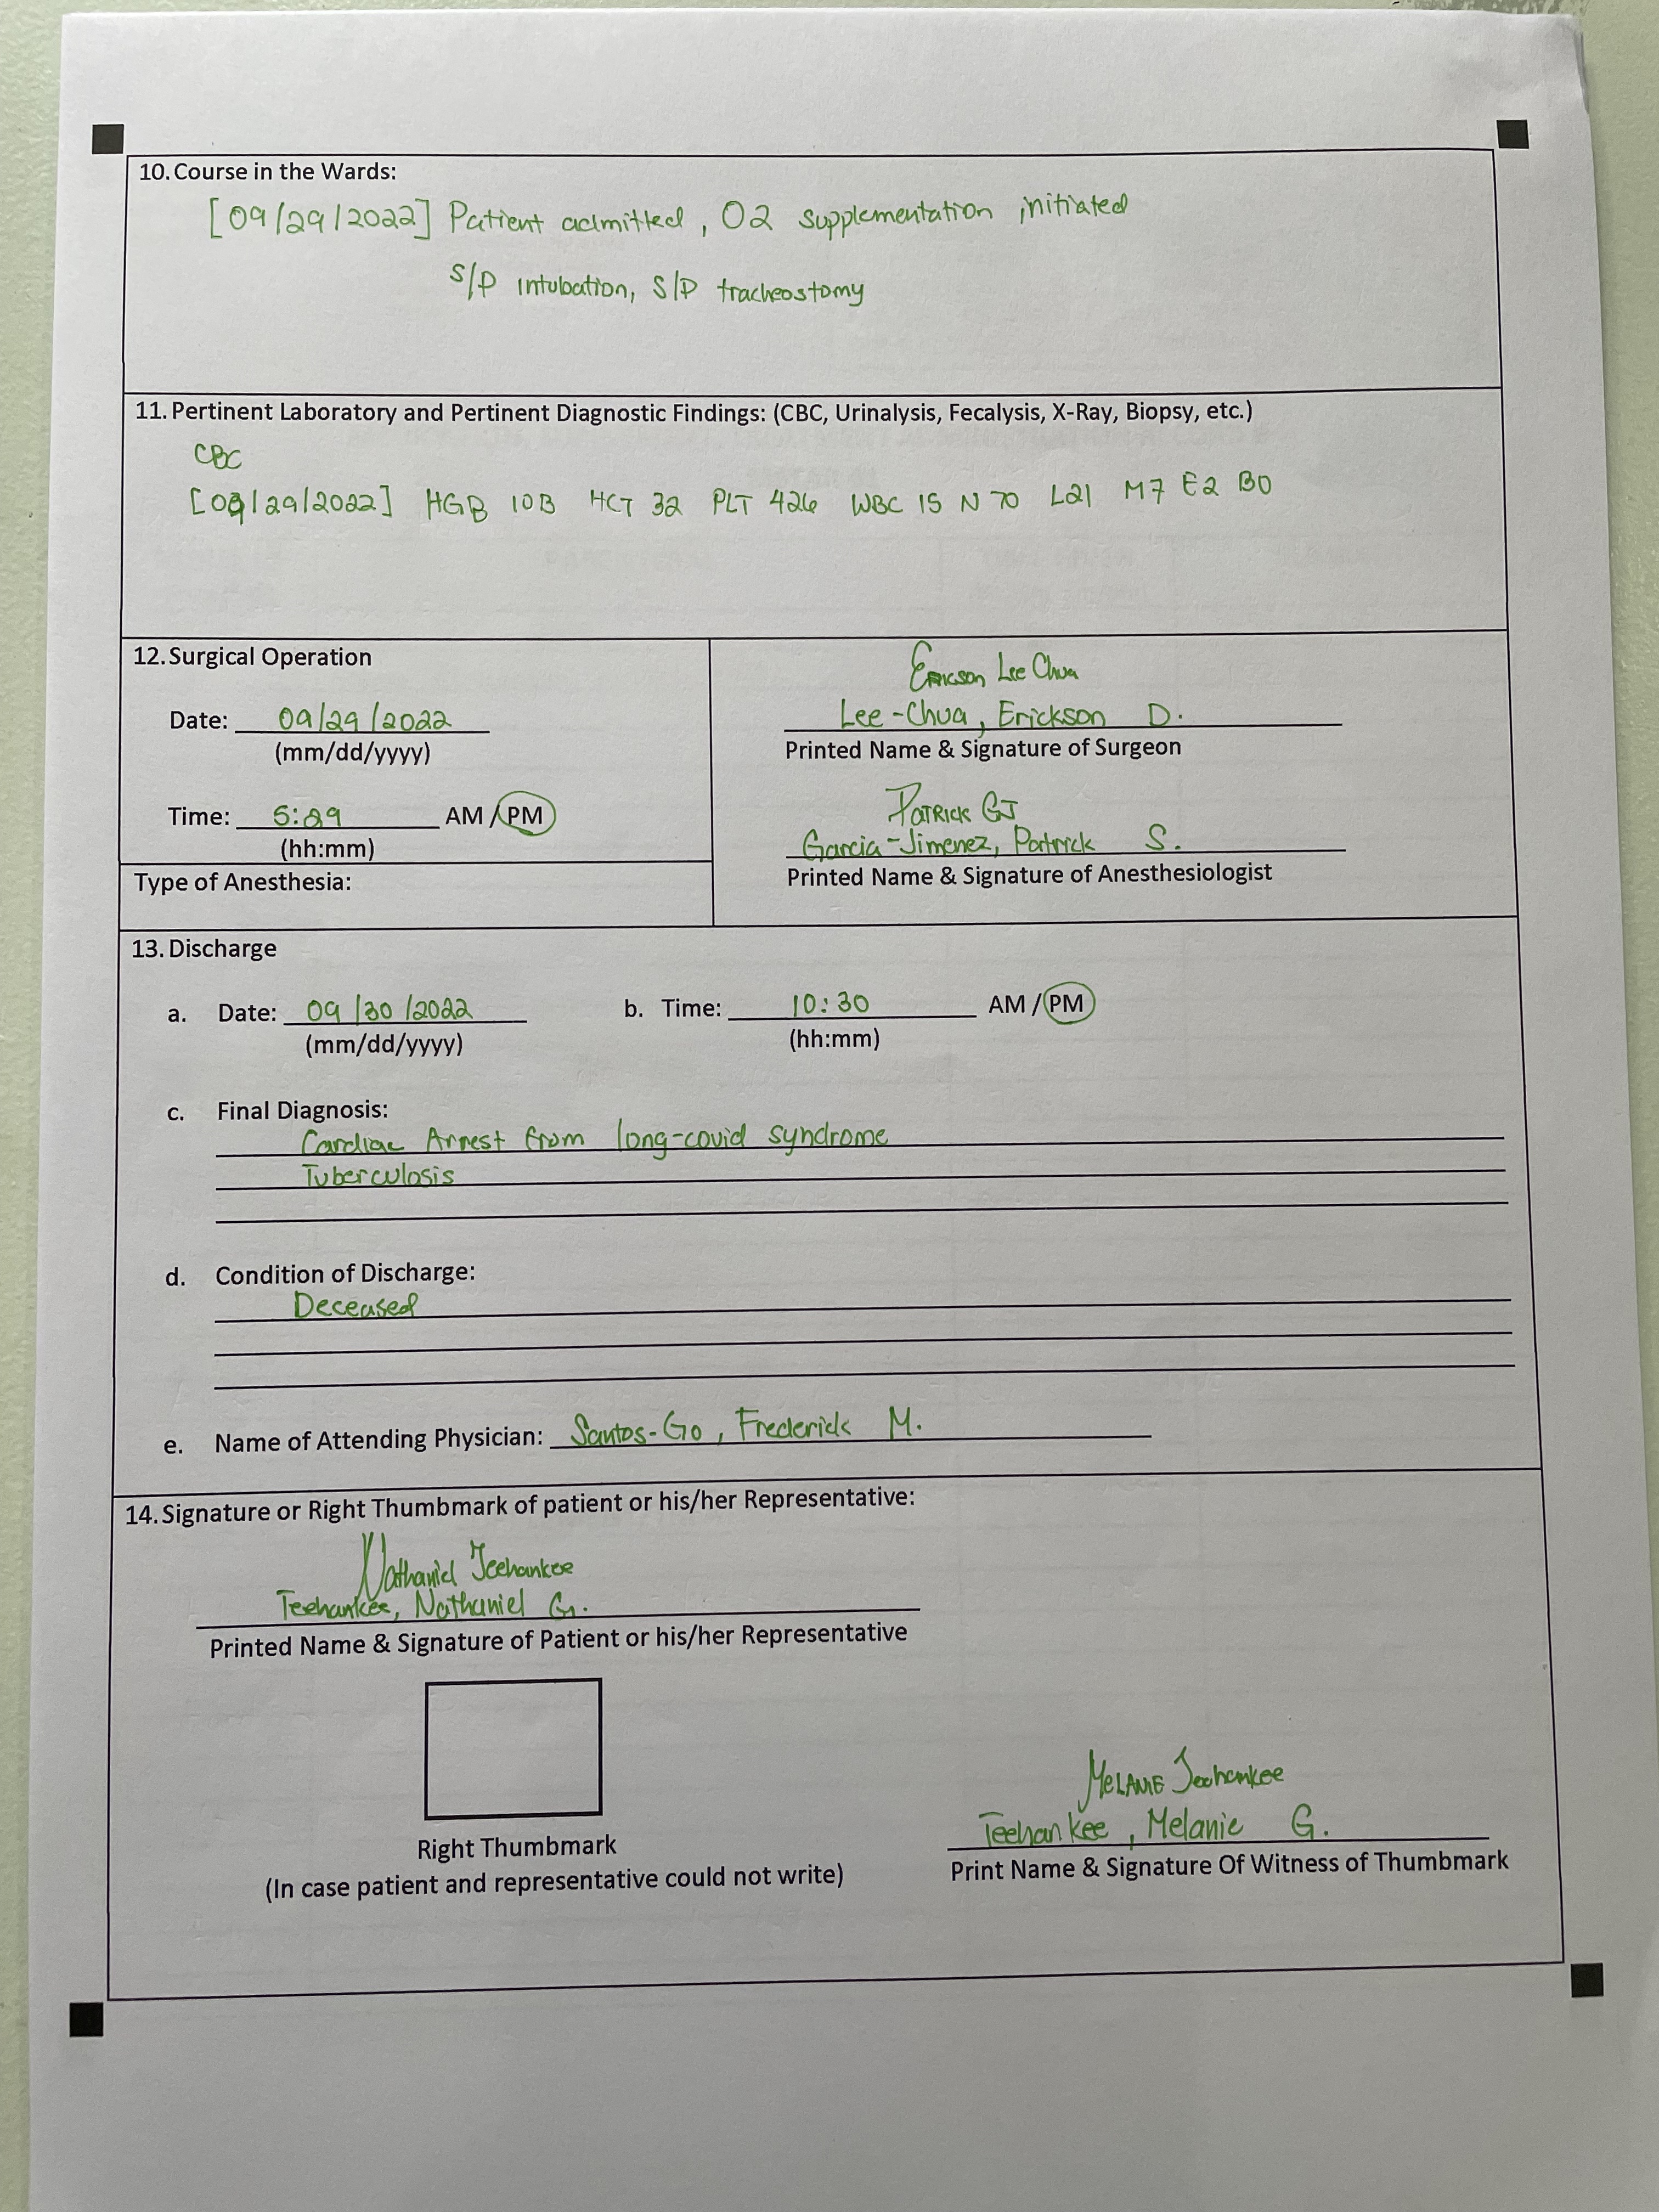 10. Course in the Wards:
[09/29/2022] Patient admitted, O2 supplementation initiated
S/P intubation, S/P tracheostomy
11. Pertinent Laboratory and Pertinent Diagnostic Findings: (CBC, Urinalysis, Fecalysis, X-Ray, Biopsy, etc.)
CBC
[09/29/2022] HGB 10B HCT 32 PLT 426 WBC 15 N 70 L21 M7 E2 B0
12. Surgical Operation
Date: 09/29/2022
(mm/dd/yyyy)
Time: 5:29 AM / PM
(hh:mm)
Type of Anesthesia:
Erickson Lee Chua
Lee-Chua, Erickson D.
Printed Name & Signature of Surgeon
Patrick GJ
Garcia-Jimenez, Patrick S.
Printed Name & Signature of Anesthesiologist
13. Discharge
a. Date: 09/30/2022 b. Time: 10:30 AM / PM
(mm/dd/yyyy) (hh:mm)
c. Final Diagnosis:
Cardiac Arrest from long-covid syndrome
Tuberculosis
d. Condition of Discharge:
Deceased
e. Name of Attending Physician: Santos-Go, Frederick M.
14. Signature or Right Thumbmark of patient or his/her Representative:
Nathaniel Teehankee
Teehankee, Nathaniel G.
Printed Name & Signature of Patient or his/her Representative
Right Thumbmark
(In case patient and representative could not write)
Melanie Teehankee
Teehankee, Melanie G.
Print Name & Signature Of Witness of Thumbmark